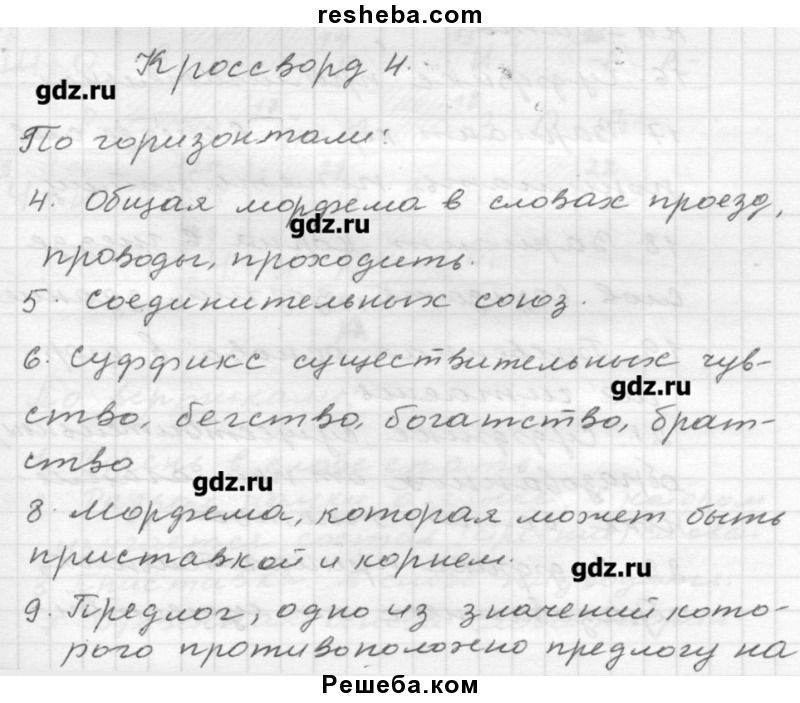 resheba.com
Кроссворд 4.
gdz.ru
По горизонтали:
4. Общая морфема в словах проезд,
gdz.ru
проводы, проходить.
5. Соединительных союз.
6. Суффикс существительных чув-
gdz.ru
ство, бегство, богатство, брат-
ство
gdz.ru
8. Морфема, которая может быть
приставкой и корнем.
gdz.ru
9. Предлог, одно из значений кото-
рого противоположно предлогу на
Решеба.ком